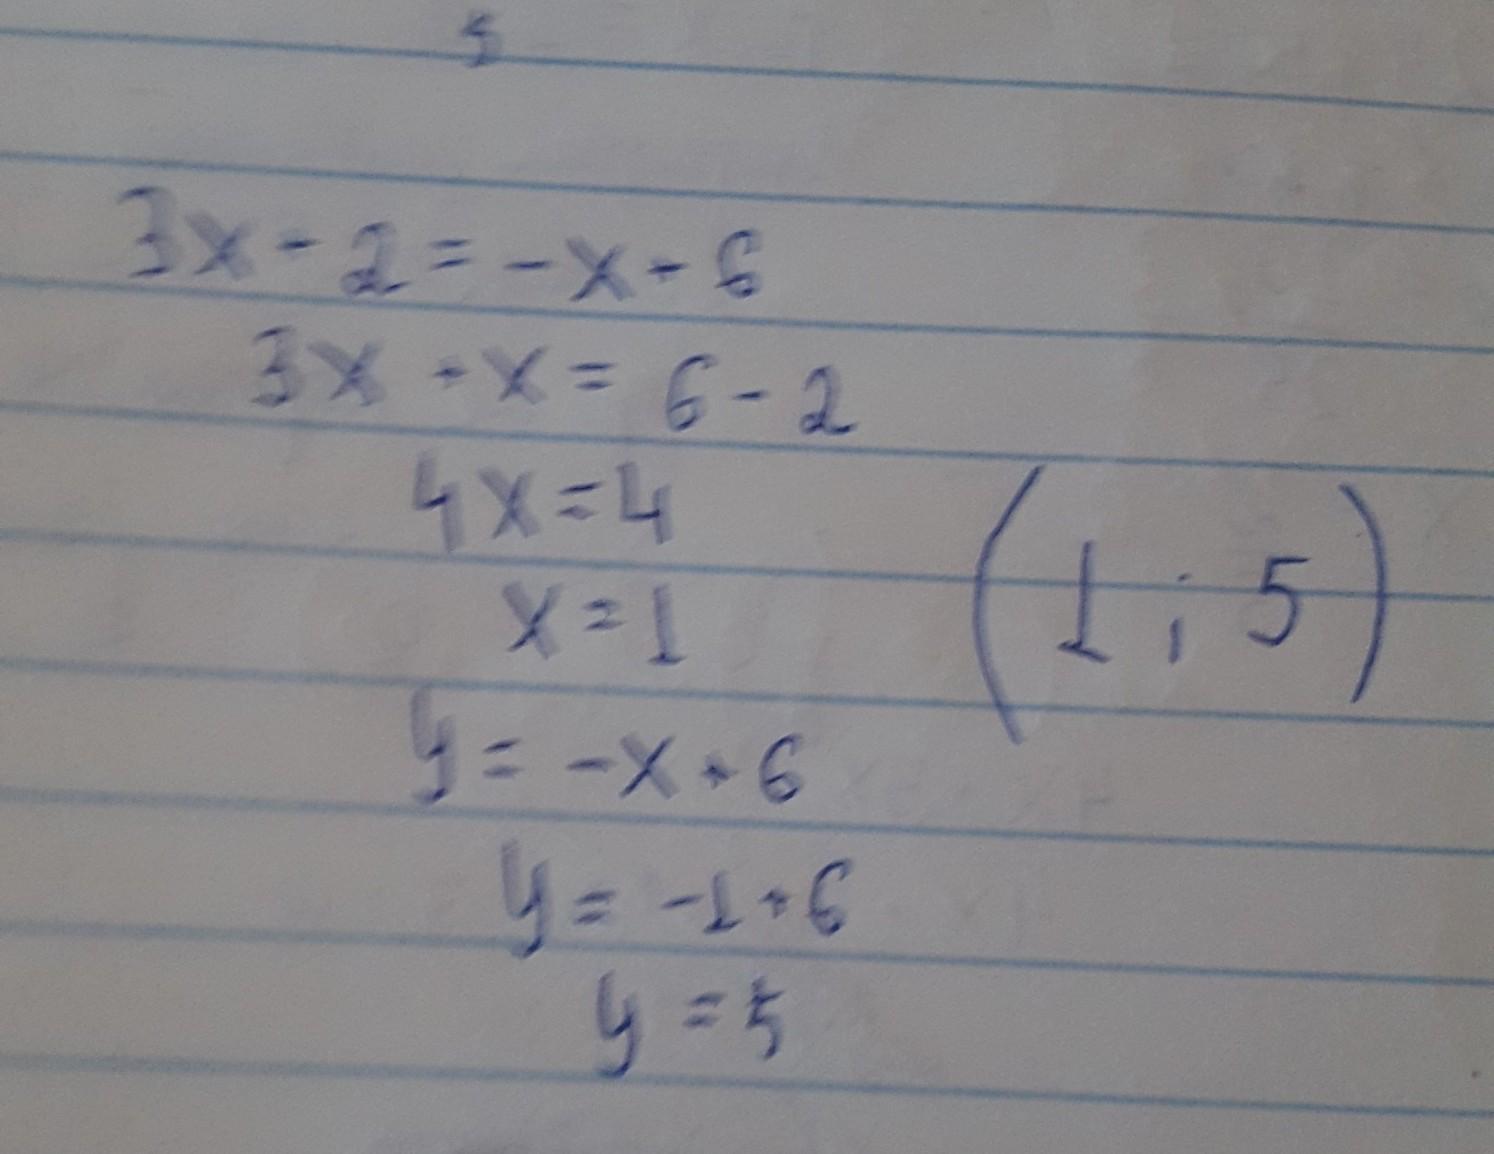 5
3x + 2 = -x + 6
3x + x = 6 - 2
4x = 4
x = 1
(1 ; 5)
y = -x + 6
y = -1 + 6
y = 5